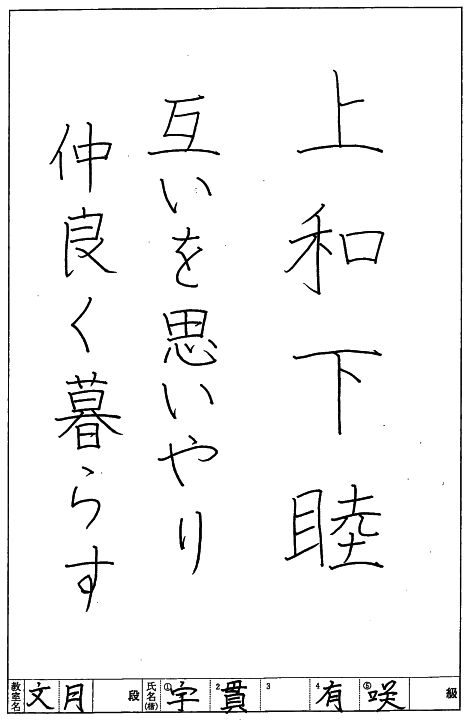 上和下睦
互いを思いやり
仲良く暮らす
教室名 文月 段 氏名(楷) ① 宇 2 貫 3 4 有 ⑤ 咲 級